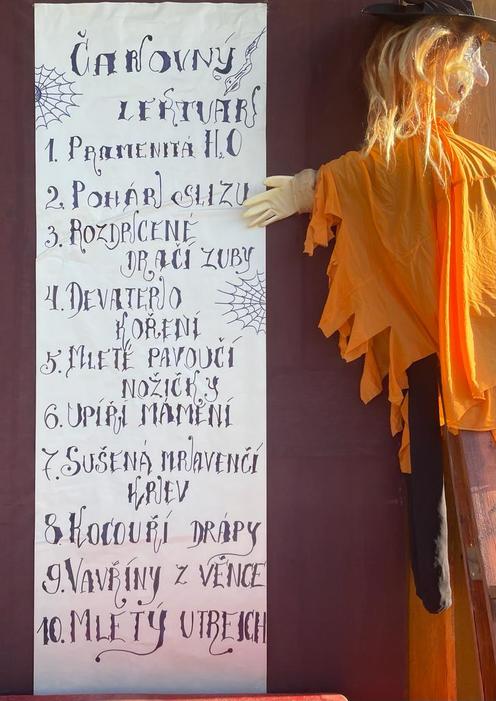 ČAROVNÝ
LEKTVAR
1. PRAMENITÁ H2O
2. POHÁR SLIZU
3. ROZDRCENÉ
DRAČÍ ZUBY
4. DEVATERO
KOŘENÍ
5. MLETÉ PAVOUČÍ
NOŽIČKY
6. UPÍŘÍ MÁMENÍ
7. SUŠENÁ MRAVENČÍ
KREV
8. KOCOUŘÍ DRÁPY
9. VAVŘÍNY Z VĚNCE
10. MLETÝ UTREJCH